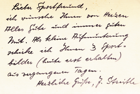 Lieber Sportfreund,
ich wünsche Ihnen von Herzen
alles Gute und immer guten
Mut. Als kleine Aufmunterung
schicke ich Ihnen 3 Sport-
bilder (
aus vergangenen Tagen.
Herzliche Grüße, J.